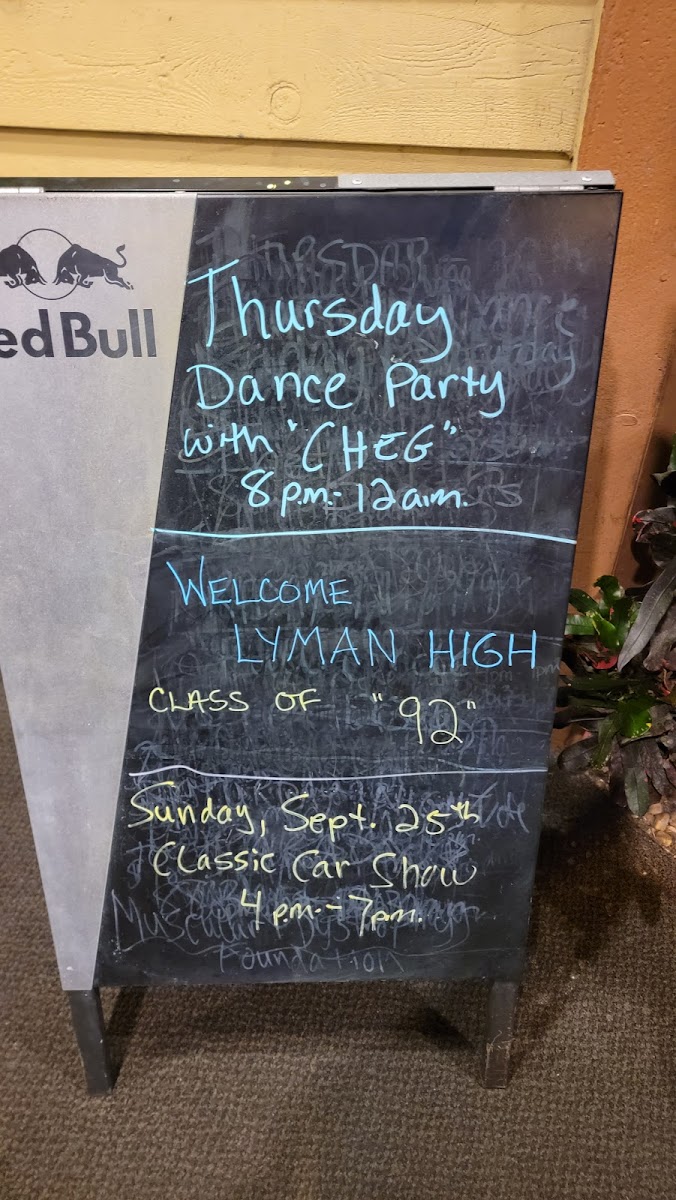 ed Bull
Thursday
Dance Party
with "CHEG"
8 p.m.-12 a.m.
WELCOME
LYMAN HIGH
CLASS OF "92"
Sunday, Sept. 25th
Classic Car Show
4 p.m.-7 p.m.
Muscular Dystrophy
Foundation